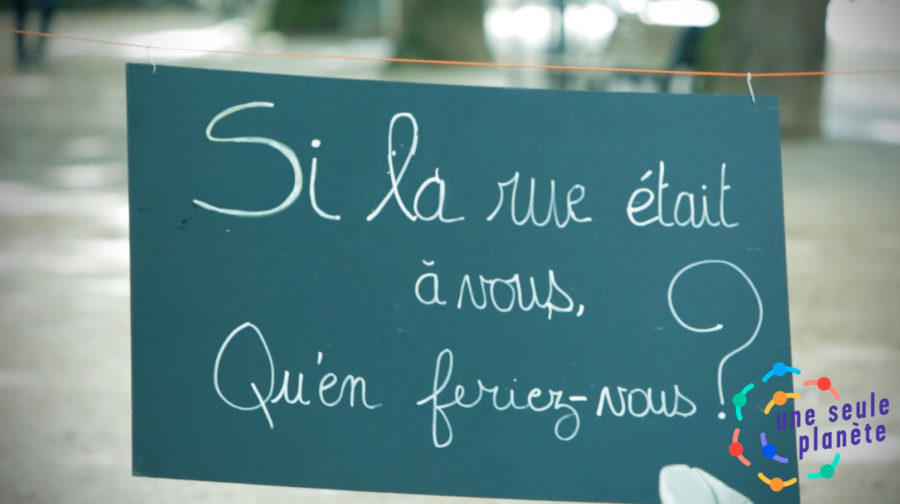 Si la rue était
à vous,
Qu'en feriez-vous ?
une seule
planète